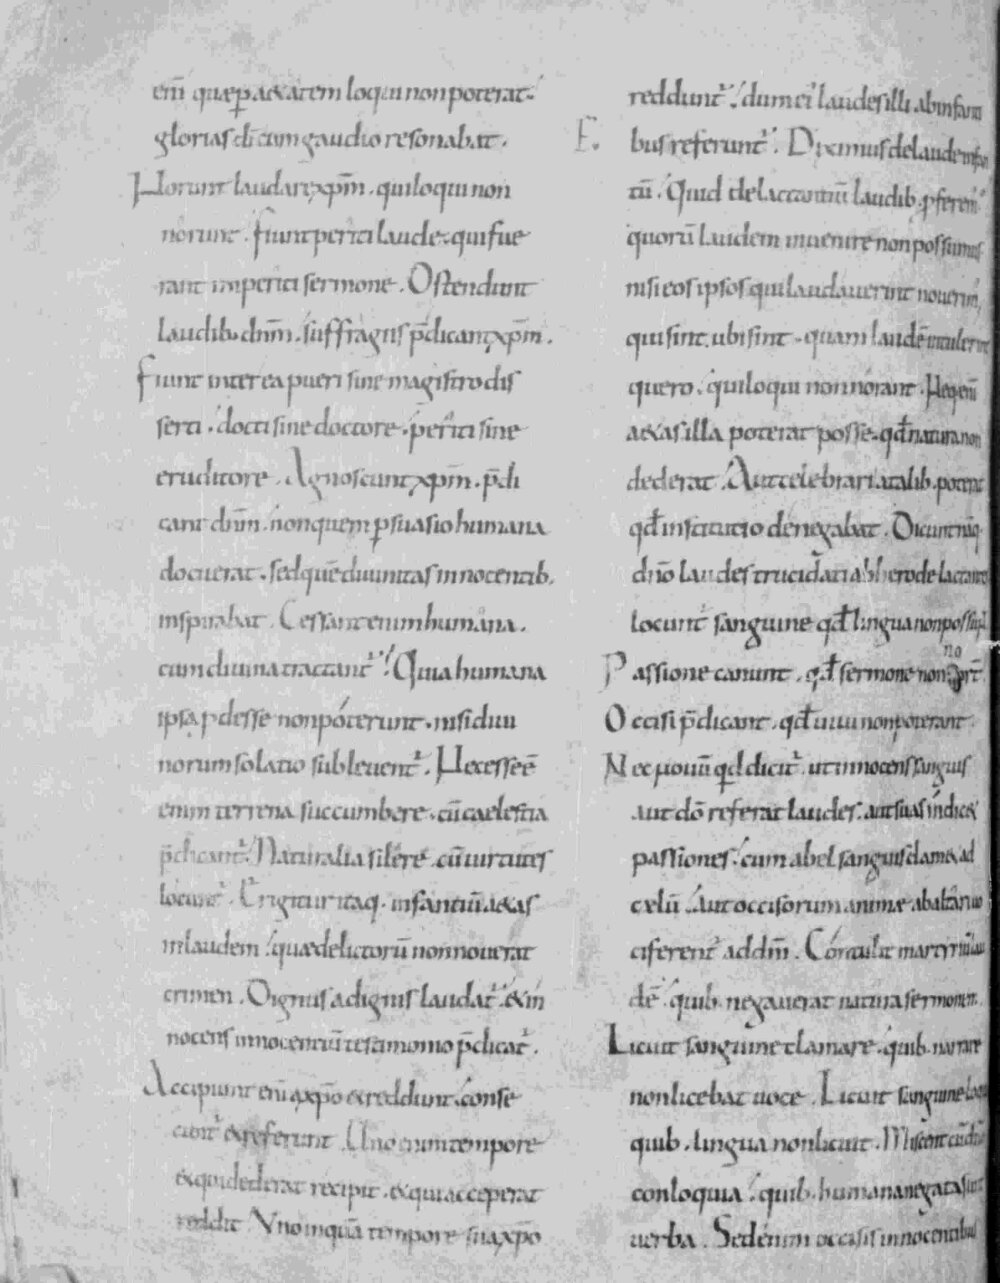 eni̅ quae p̲ aetatem loqui non poterat.
glorias d̅i cum gaudio resonabat.
Norunt laudare xp̅m. qui loqui non
norunt. fiunt periti laude. qui fue
rant imperiti sermone. Ostendunt
laudib. dn̅m. suffragiis p̅dicant xp̅m.
fiunt interea pueri sine magistro dis
serti. docti sine doctore. periti sine
eruditore. Agnoscunt xp̅m. p̅di
cant dn̅m. non quem p̲suasio humana
docuerat. sed que̅ diuinitas innocentib.
inspirabat. Cessant enim humana.
cum diuina tractant᷑. Quia humana
ipsa p̲desse non poterunt. nisi diui
norum solatio subleuent᷑. Necesse e̅
enim terrena succumbere. cu̅ caelestia
p̅dicant᷑. Naturalia silere. cu̅ uirtutes
locunt᷑. Erigitur itaq. infantiu̅ aetas
in laudem. quae delictoru̅ non nouerat
crimen. Dignus a dignis laudat᷑. et in
nocens innocentiu̅ testimonio p̅dicat᷑.
Accipiunt eni̅ a xp̅o et reddunt. conse
cunt᷑ et referunt. Uno enim tempore
et qui dederat recipit. et qui acceperat
reddit. Uno inqua̅ tempore sua xp̅o
reddunt᷑. dum ei laudes illi ab infanti
E. bus referunt᷑. Diximus de laude infan
tu̅. Quid de lactantiu̅ laudib. p̲feren
quoru̅ laudem inuenire non possumus
nisi eos ipsos qui laudauerint nouerim,
qui sint. ubi sint. quam laude̅ intulerint
quero. qui loqui non norant. Neq. eni̅
aetas illa poterat posse. qd̅ natura non
dederat. Aut celebrari a talib. poterat
qd̅ institutio denegabat. Dicunt na̅q.
dn̅o laudes trucidati ab herode lactante
locunt᷑ sanguine qd̅ lingua non poss
Passione canunt. qd̅ sermone non no
Occisi p̅dicant. qd̅ uiui non poterant
Nec nouu̅ qd̅ dicit᷑. ut innocens sanguis
aut do̅ referat laudes. aut suas indicet
passiones. cum abel sanguis clamet ad
celu̅. Aut occisorum animae ab altari uo
ciferent᷑ ad dn̅m. Contulit martyriu̅ lau
de̅. quib. negauerat natura sermonem.
Licuit sanguine clamare. quib. narrare
non licebat uoce. Licuit sanguine loqui
quib. lingua non licuit. Miscent cu̅ dn̅o
conloquia. quib. humana negata sunt
uerba. Sed enim occisis innocentibus